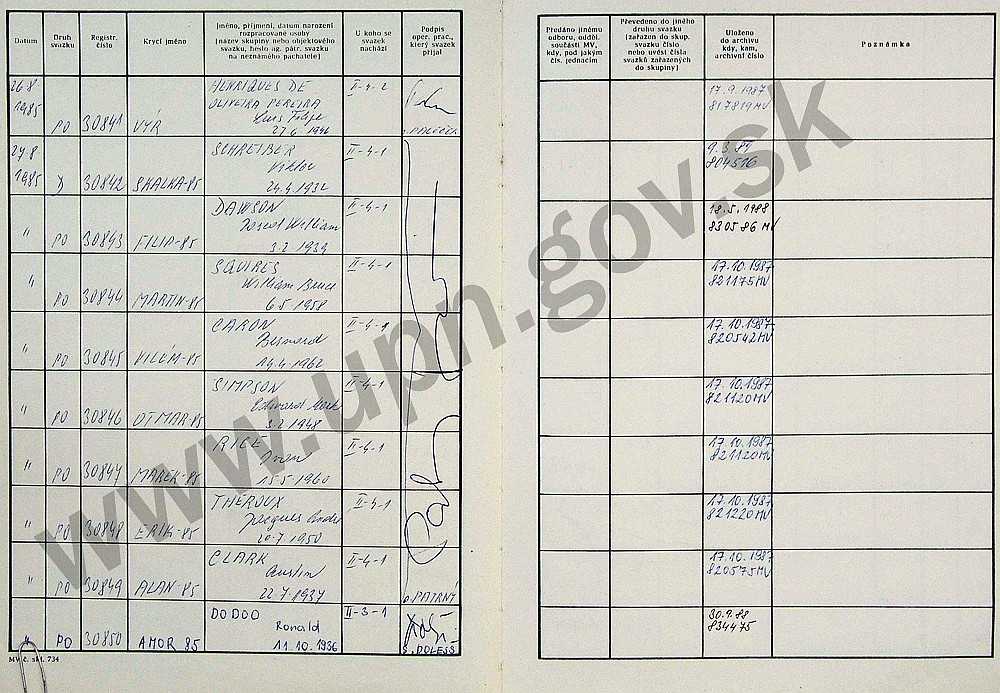 Datum
Druh svazku
Registr. číslo
Krycí jméno
Jméno, příjmení, datum narození
rozpracované osoby
(název skupiny nebo objektového
svazku, heslo ag. pátr. svazku
na neznámého pachatele)
U koho se
svazek
nachází
Podpis
oper. prac.,
který svazek
přijal
26.8
1985 PO 30841 VÝR
HENRIQUES DE
OLIVEIRA PEREIRA
Luis Filipe
27.6.1946
II-4-2
s. PALEČEK
27.8
1985 30842 SKALKA-85
SCHREIBER
Viktor
24.4.1932
II-4-1
" PO 30843 FILIP-85
DAWSON
William
3.2.1939
II-4-1
" PO 30844 MARTIN-85
SQUIRES
William Bruce
6.5.1958
II-4-1
" PO 30845 VILÉM-85
CARON
Bernard
14.4.1962
II-4-1
" PO 30846 OTMAR-85
SIMPSON
Edward Mark
3.2.1948
II-4-1
" PO 30847 MAREK-85
RICE
Ivan
15.5.1960
II-4-1
" PO 30848 ERIK-85
THEROUX
Jacques André
20.7.1950
II-4-1
" PO 30849 ALAN-85
CLARK
Austin
22.7.1937
II-4-1
s. PATRNÝ
" PO 30850 AMOR 85
DODOO
Ronald
11.10.1936
II-3-1
S. DOLEŠŠ
MV č. skl. 734
Předáno jinému
odboru, odděl.
součásti MV,
kdy, pod jakým
čís. jednacím
Převedeno do jiného
druhu svazku
(zařazen do skup.
svazku číslo
nebo uvést čísla
svazků zařazených
do skupiny)
Uloženo
do archivu
kdy, kam,
archivní číslo
Poznámka
17.9.1987
817819 MV
9.3.89
804516
18.5.1988
830586 MV
17.10.1987
821175 MV
17.10.1987
820542 MV
17.10.1987
821120 MV
17.10.1987
821120 MV
17.10.1987
821220 MV
17.10.1987
820575 MV
30.9.88
834475
www.upn.gov.sk